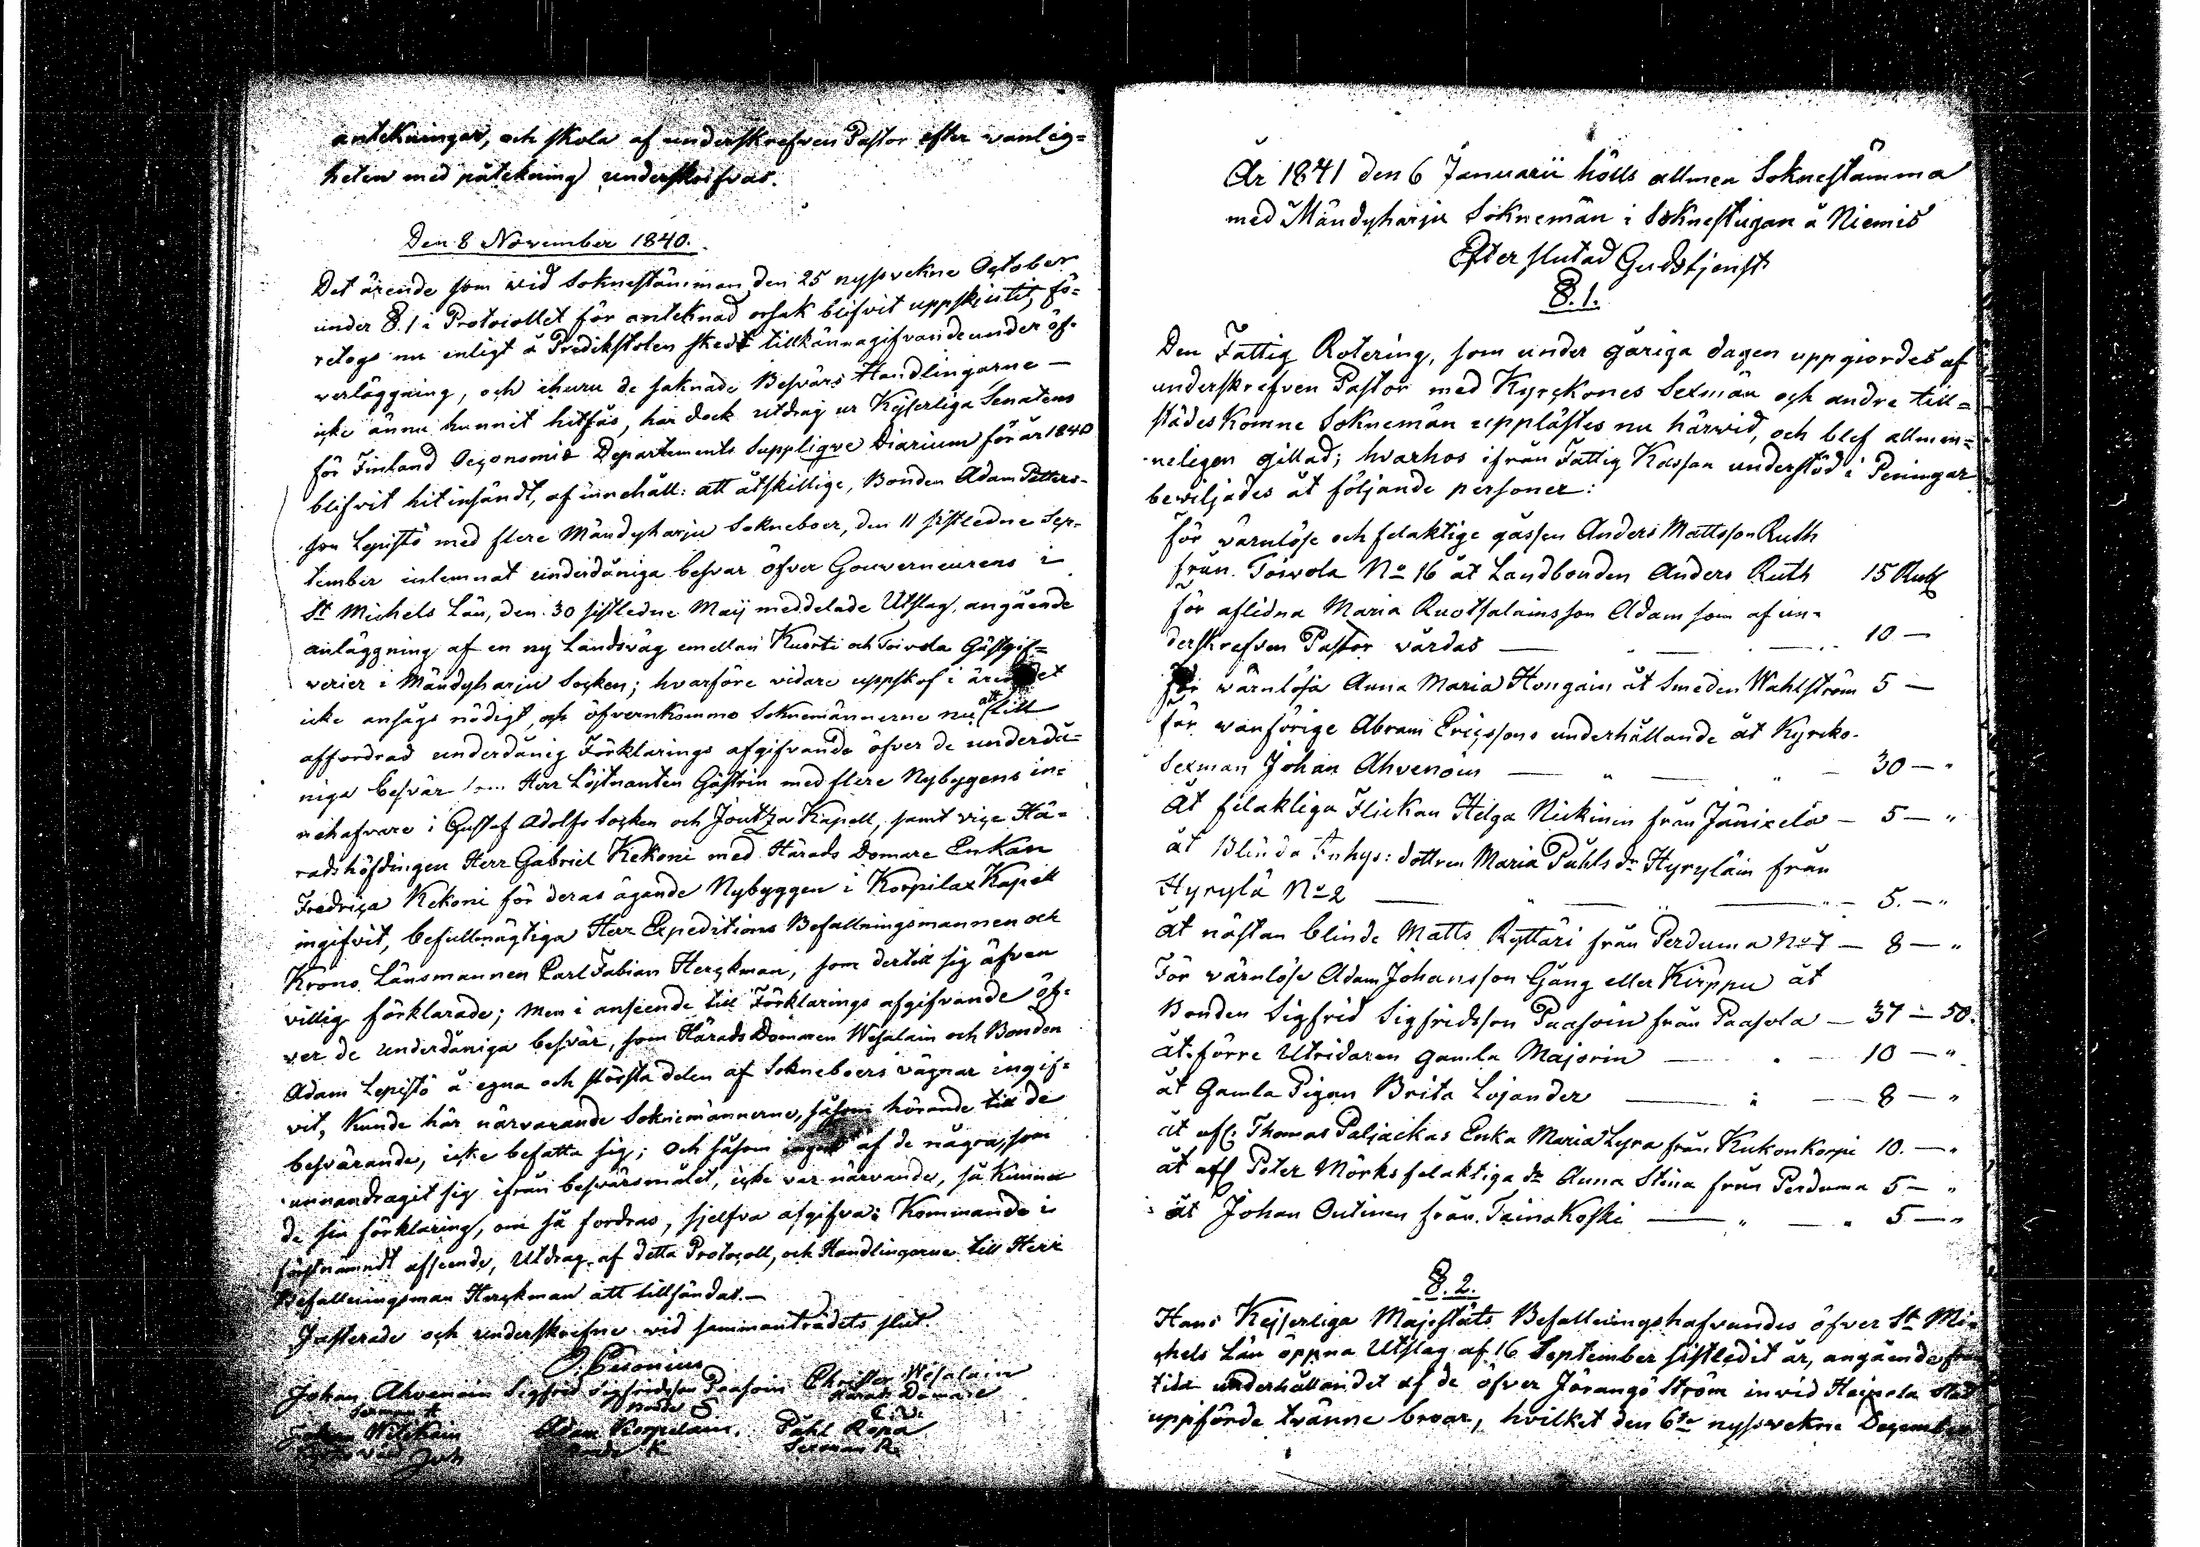 antekningar, och skola af underskrefven Pastor efter wanlig=
heten med påtekning underskrifvas.
Den 8 November 1840.
Det ärende som wid Soknestämman den 25 nyssvekne October
under §. 1 i Protocollet för anteknad orsak blifvit uppskjutit, fö=
retogs nu enligt å Predikstolen skedt tillkännagifvande under öf-
verläggning, och ehuru de saknade Besvärs Handlingarne —
icke ännu hunnit hitfås, har dock utdrag ur Kejserliga Senatens
för Finland Oeconomie Departements Supplique Diarium för år 1840
blifvit hitinsändt, af innehåll: att åtskillige, Bonden Adam Petters-
son Lepistö med flere Mändyharju Sokneboer, den 11 sistledne Sep-
tember inlemnat underdåniga besvär öfver Gouverneurens i
St Michels Län, den 30 sistledne Maij meddelade Utslag, angående
anläggning af en ny Landsväg emellan Kuorti och Toivola Gästgif=
verier i Mändyharju Socken; hvarföre vidare uppskof i ärendet
icke ansågs nödigt, och öfverenkommo Soknemännerne nu att till
affordrad underdånig Förklarings afgifvande öfver de underdå=
niga besvär som Herr Löjtnanten Gåstrin med flere Nybyggens in=
nehafvare i Gustaf Adolfs Socken och Joutza Kapell, samt vice Hä=
radshöfdingen Herr Gabriel Kekoni med Härads Domare Enkan
Fredrica Kekoni för deras ägande Nybyggen i Korpilax Kapell
ingifvit, befullmägtiga Herr Expeditions Befallningsmannen och
Krono Länsmannen Carl Fabian Herckman, som dertill sig äfven
villig förklarade; men i anseende till Förklarings afgifvande öf-
ver de underdåniga besvär, som Härads Dommen Wesalain och Bonden
Adam Lepistö å egna och största delen af Sokneboers vägnar ingif=
vit, kunde här närvarande Soknemännerne, såsom hörande till de
besvärande, icke befatta sig; och såsom ingen af de några, som
unnandragit sig ifrån besvärsmålet, icke var närvande, så kunna
de sin förklaring, om så fordras, sjelfva afgifva: Kommande i
förstnämndt afseende, Utdrag af detta Protocoll, och Handlingarne till Herr
Befallningsman Herckman att tillsändas.—
Justerade och underskrefne vid sammanträdets slut.
Johan Ahvenain Sigfrid Sigfridsson Paasoin Christer Wesalain
Sexman A Bonde S Härads Domare
Johan Witikain Adam Korpelain, Påhl Ropa
Bonde K Sexman R.
År 1841 den 6 Januarii hölls allmen Soknestämma
med Mändyharju Soknemän i Soknestugan å Niemis
Efter slutad Gudstjenst
§. 1.
Den Fattig Rotering, som under gåriga dagen uppgjordes af
underskrefven Pastor med Kyrckones Sexmän och andre till=
städes komne Soknemän upplästes nu härwid, och blef allmen=
neligen gillad; hvarhos ifrån Fattig Kassan understöd i Peningar
beviljades åt följande personer:
För värnlöse och felaktige gossen Anders Mattsson Ruth
från Toivola No 16 åt Landbonden Anders Ruth 15 Rub
för aflidna Maria Ruotsalainsson Adam som af un-
derskrefven Pastor vårdas — 10 —
För wärnlösa Anna Maria Hongain åt Smeden Wahlström 5 —
För wanförige Abram Ericssons underhållande åt Kyrcko-
Sexman Johan Ahvenain — " — " — 30 — "
Åt felaktiga Flickan Helga Nickinin från Jänixelä — 5 — "
åt Blinda Inhys: dottren Maria Påhls dr Hyryläin från
Hyrylä No 2 — " — " — 5. — "
åt nästan blinde Matts Ryttäri från Perduma No 7 — 8 — "
För wärnlöse Adam Johansson Gjäng eller Kirppu åt
Bonden Sigfrid Sigfridsson Paasoin från Paasola — 37 — 50.
åt förre Utridaren gamla Majorin — " — 10 — "
åt Gamla Pigan Brita Lojander — " — 8 — "
åt afl: Thomas Paljackas Enka Maria Lyra från Kukonkorpi 10. — "
åt afl Peter Mörks felaktiga dr Anna Stina från Perduma 5 — "
åt Johan Outinen från Tainakoski — " — " 5 — "
§. 2.
Hans Kejserliga Majestäts Befallningshafvandes öfver St Mi-
chels Län öppna Utslag af 16 September sistledit år, angående fram
tida underhållandet af de öfver Jörangö Ström invid Haipala stad
uppförde tvänne broar, hvilket den 6te nyssvekne December